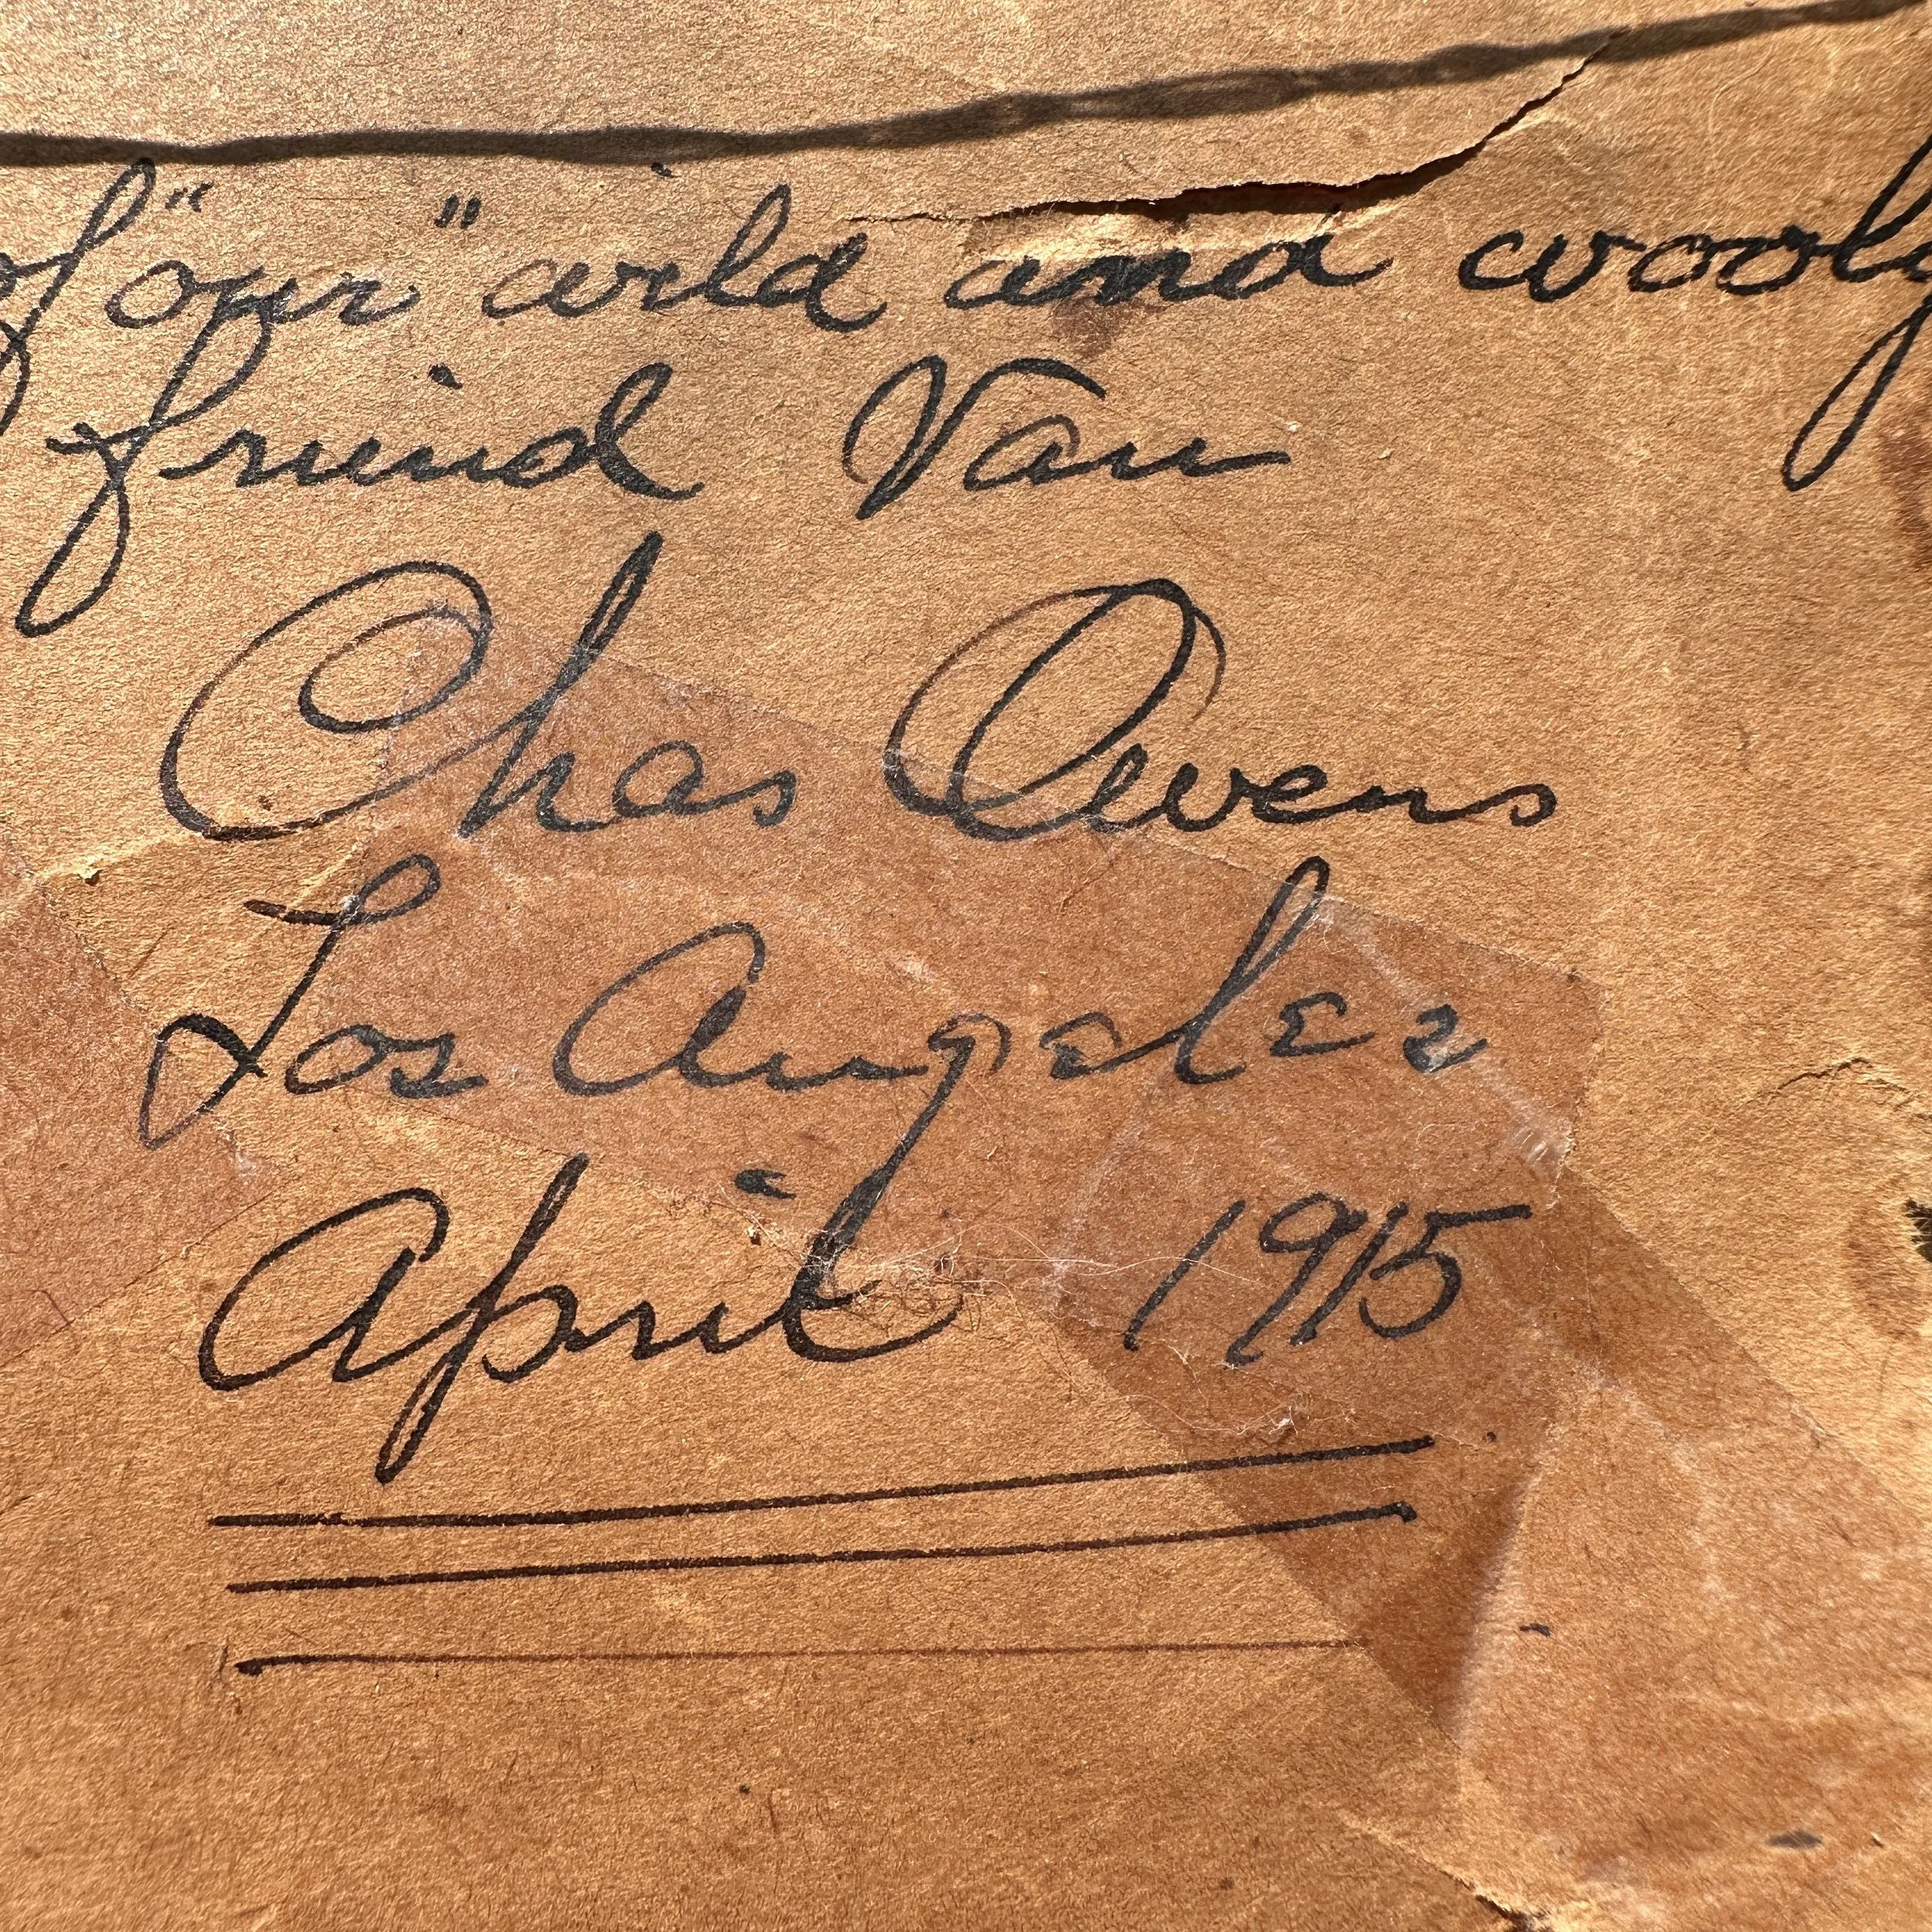 of "our" wild and wooly
friend Van
Chas Owens
Los Angeles
April 1915